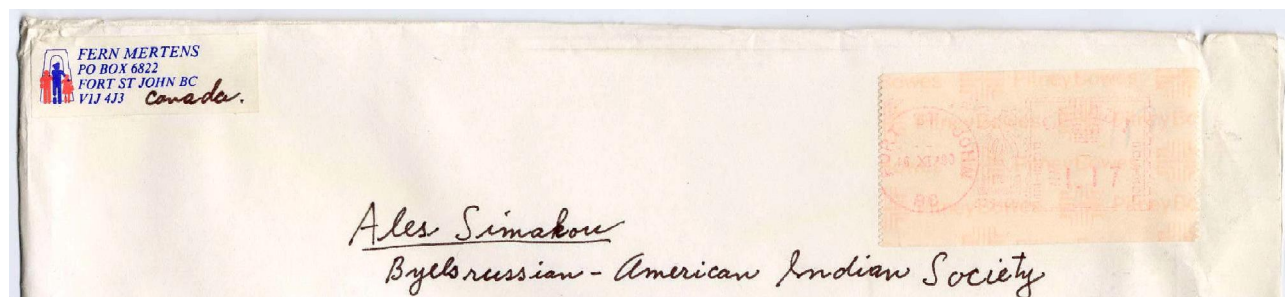 FERN MERTENS
PO BOX 6822
FORT ST JOHN BC
V1J 4J3 Canada.
PitneyBowes
JOHN
1.17
Ales Simakou
Byelsrussian - American Indian Society